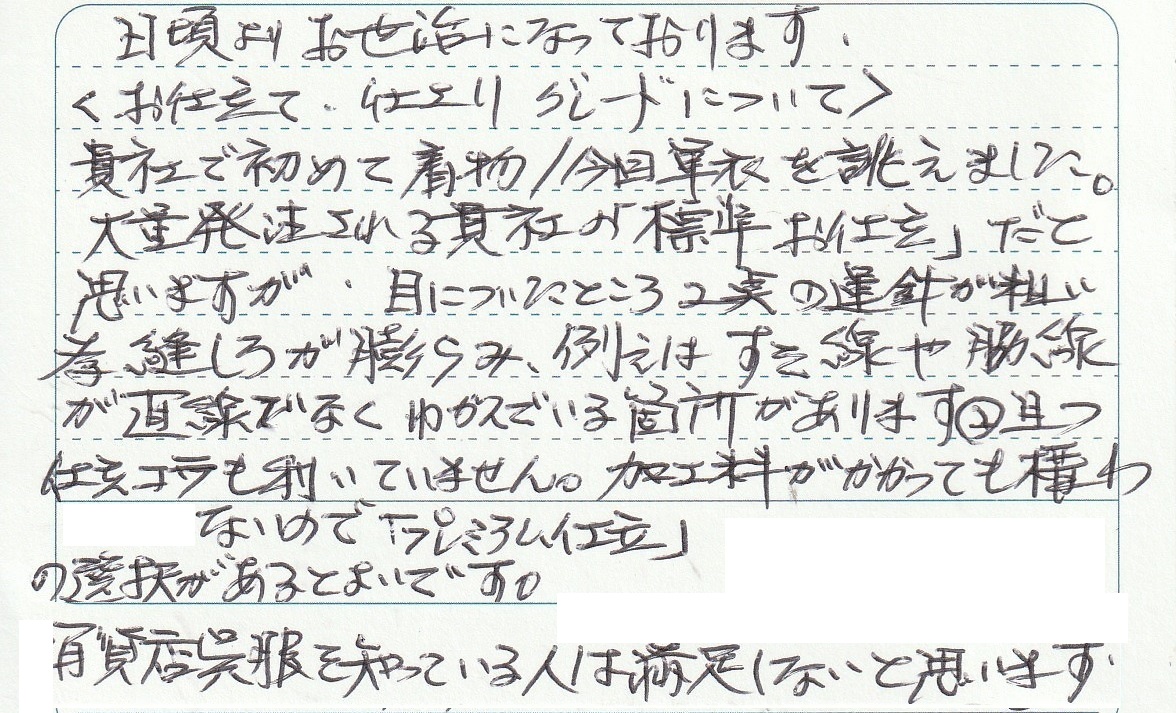 日頃よりお世話になっております.
<お仕立て.仕上り グレードについて>
貴社で初めて着物/今回単衣を誂えました。
大量発注される貴社の「標準お仕立」だと
思いますが、目についたところ2点の運針が粗い
為縫しろが膨らみ、例えば すそ線や脇線
が直線でなくゆがんでいる箇所があります②且つ
仕立コテも利いていません。加工料がかかっても構わ
ないので「プレミアム仕立」
の選択があるとよいです。
百貨店呉服を知っている人は満足しないと思います.